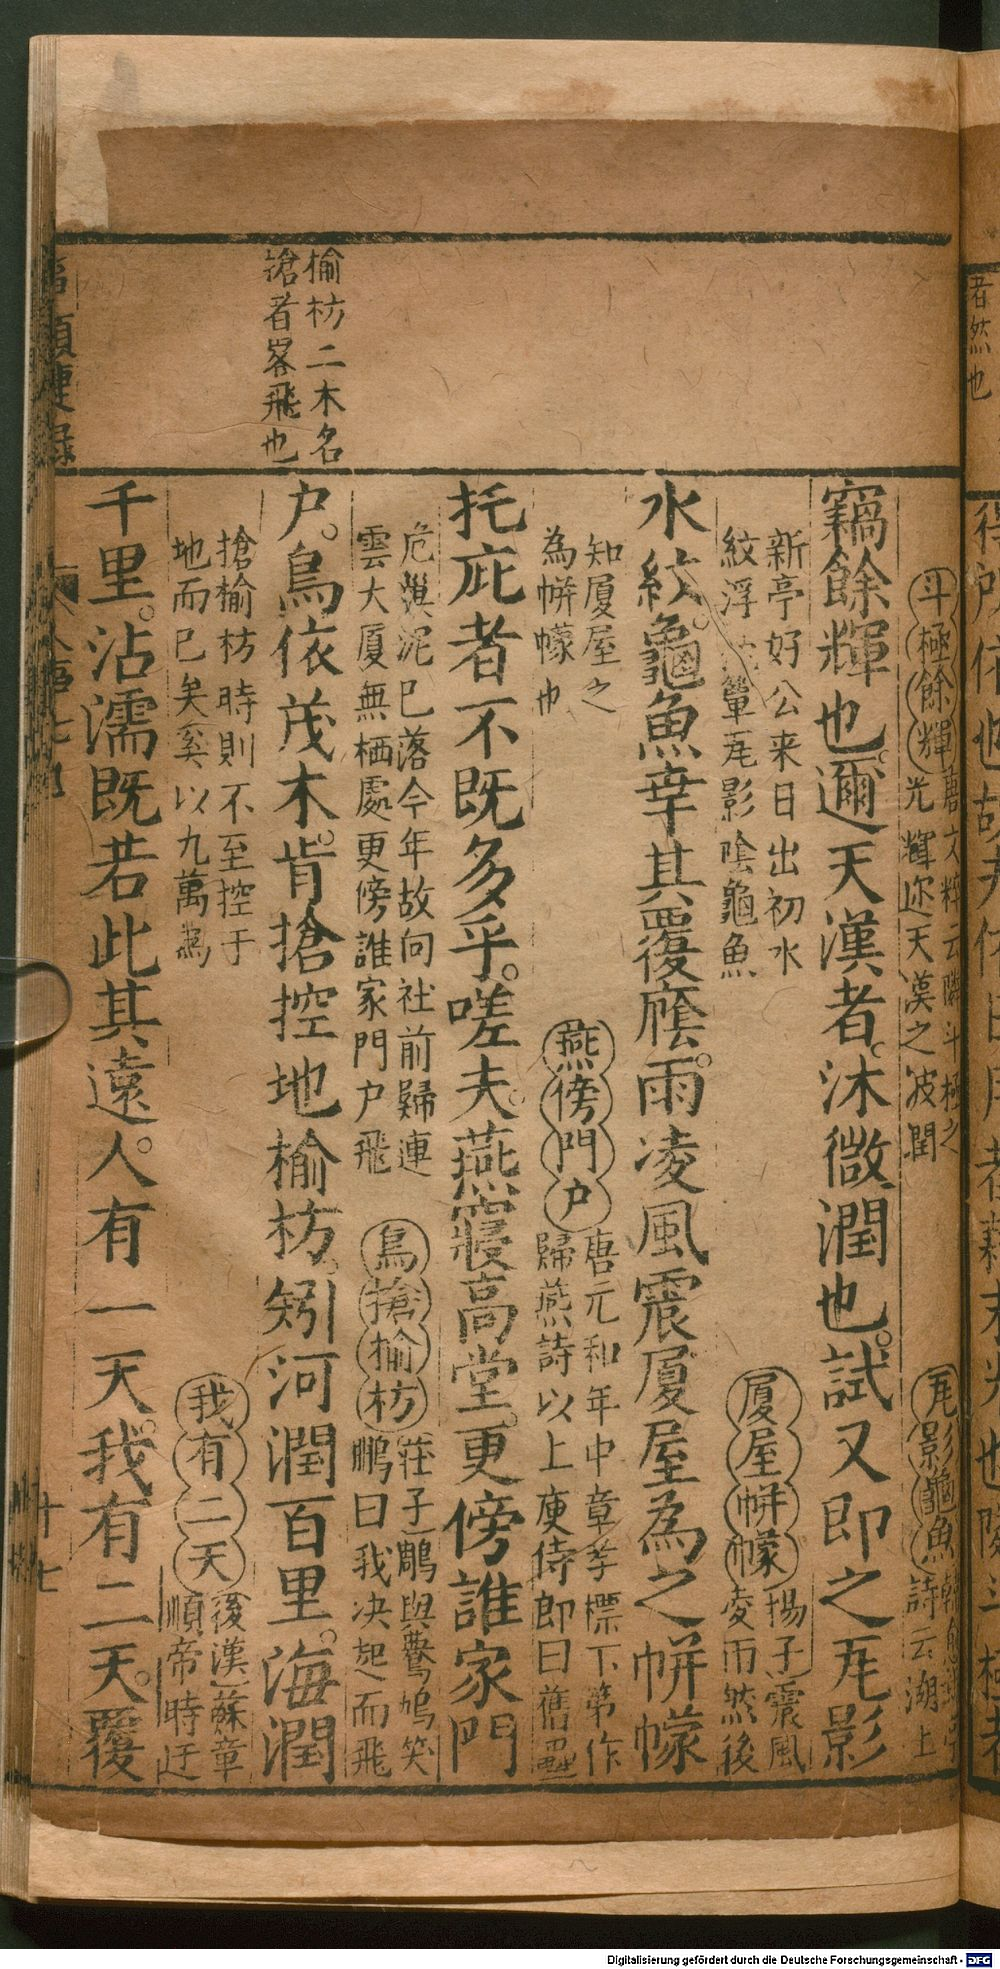 榆枋二木名
搶者畧飛也
斗極餘輝 唐文粹云隣斗極之
光輝迩天漢之波潤
瓦影龜魚
詩云湖上
竊餘輝也。邇天漢者。沐微潤也。試又即之瓦影
新亭好公来日出初水
紋浮 簟瓦影隂龜魚
厦屋帡幪 揚子震風
凌雨然後
水紋。龜魚幸其覆廕。雨凌風震厦屋為之帡幪
知厦屋之
為帡幪也
燕傍門户 唐元和年中章孝標下第作
歸燕詩以上庾侍郎曰舊壘
托庇者不既多乎。嗟夫。燕寢高堂。更傍誰家門
危巢泥已落今年故向社前歸連
雲大厦無栖處更傍誰家門户飛
鳥搶榆枋 莊子鵰與鷽鳩笑
鵬曰我决起而飛
户。鳥依茂木。肯搶控地榆枋。矧河潤百里。海潤
搶榆枋時則不至控于
地而已矣奚以九萬為
我有二天 後漢蘇章
順帝時迁
千里。沾濡既若此其遠。人有一天。我有二天。覆
十七
者然也
Digitalisierung gefördert durch die Deutsche Forschungsgemeinschaft - DFG